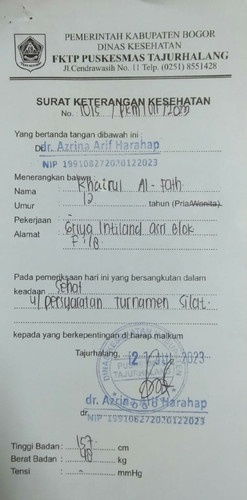 PEMERINTAH KABUPATEN BOGOR
DINAS KESEHATAN
FKTP PUSKESMAS TAJURHALANG
Jl.Cendrawasih No. 11 Telp. (0251) 8551428
SURAT KETERANGAN KESEHATAN
No. 1015 / PKM / 2023
Yang bertanda tangan dibawah ini :
dr. Azrina Arif Harahap
NIP 199108272020122023
Menerangkan bahwa :
Nama : Khairul Al-Fath
Umur : 12 tahun (Pria/Wanita)
Pekerjaan : -
Alamat : Griya Intiland asri Blok
F
Pada pemeriksaan hari ini yang bersangkutan dalam
keadaan : Sehat
u/ persyaratan turnamen Silat.
kepada yang berkepentingan di harap maklum
Tajurhalang, 12 2023
dr. Azrina Arif Harahap
dr.
NIP 199108272020122023
Tinggi Badan : 157 cm
Berat Badan : 48 kg
Tensi : - mmHg